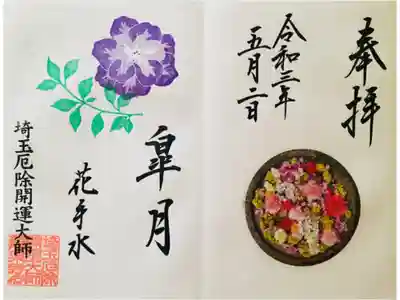 奉拝
令和三年
五月二日
皐月
花手水
埼玉厄除開運大師